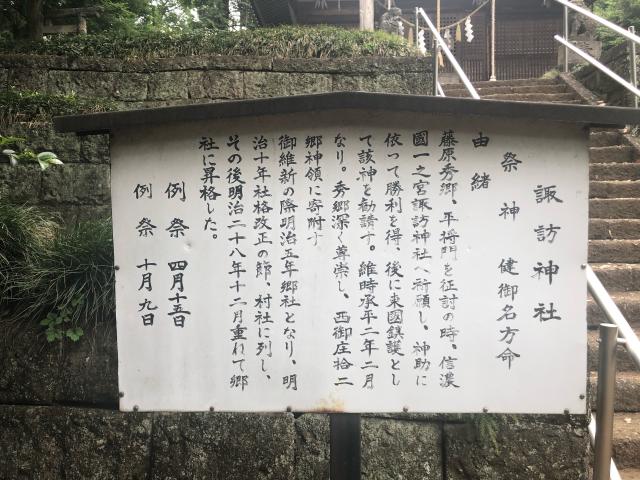 諏訪神社
祭神　健御名方命
由緒
藤原秀郷、平将門を征討の時、信濃
國一之宮諏訪神社へ祈願し、神助に
依って勝利を得、後に東國鎮護とし
て該神を勧請す。維時承平二年二月
なり。秀郷深く尊崇し、西御庄拾二
郷神領に寄附す。
御維新の際明治五年郷社となり、明
治十年社格改正の節、村社に列し、
その後明治二十八年十二月重ねて郷
社に昇格した。
例祭　四月十五日
例祭　十月九日